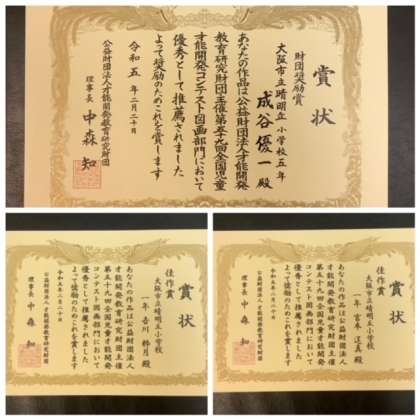 賞状
財団奨励賞
大阪市立晴明丘小学校五年
成谷優一殿
あなたの作品は公益財団法人才能開発
教育研究財団主催第五十九回全国児童
才能開発コンテスト図画部門において
優秀として推薦されました
よって奨励のためこれを賞します
令和五年二月二十日
公益財団法人才能開発教育研究財団
理事長 中森知
賞状
佳作賞
大阪市立晴明丘小学校
一年 吉川 月殿
あなたの作品は公益財団法人
才能開発教育研究財団主催
第五十九回全国児童才能開発
コンテスト図画部門において
優秀として推薦されました
よって奨励のためこれを賞します
令和五年二月二十日
公益財団法人才能開発教育研究財団
理事長 中森知
賞状
佳作賞
大阪市立晴明丘小学校
一年 宮本 真殿
あなたの作品は公益財団法人
才能開発教育研究財団主催
第五十九回全国児童才能開発
コンテスト図画部門において
優秀として推薦されました
よって奨励のためこれを賞します
令和五年二月二十日
公益財団法人才能開発教育研究財団
理事長 中森知